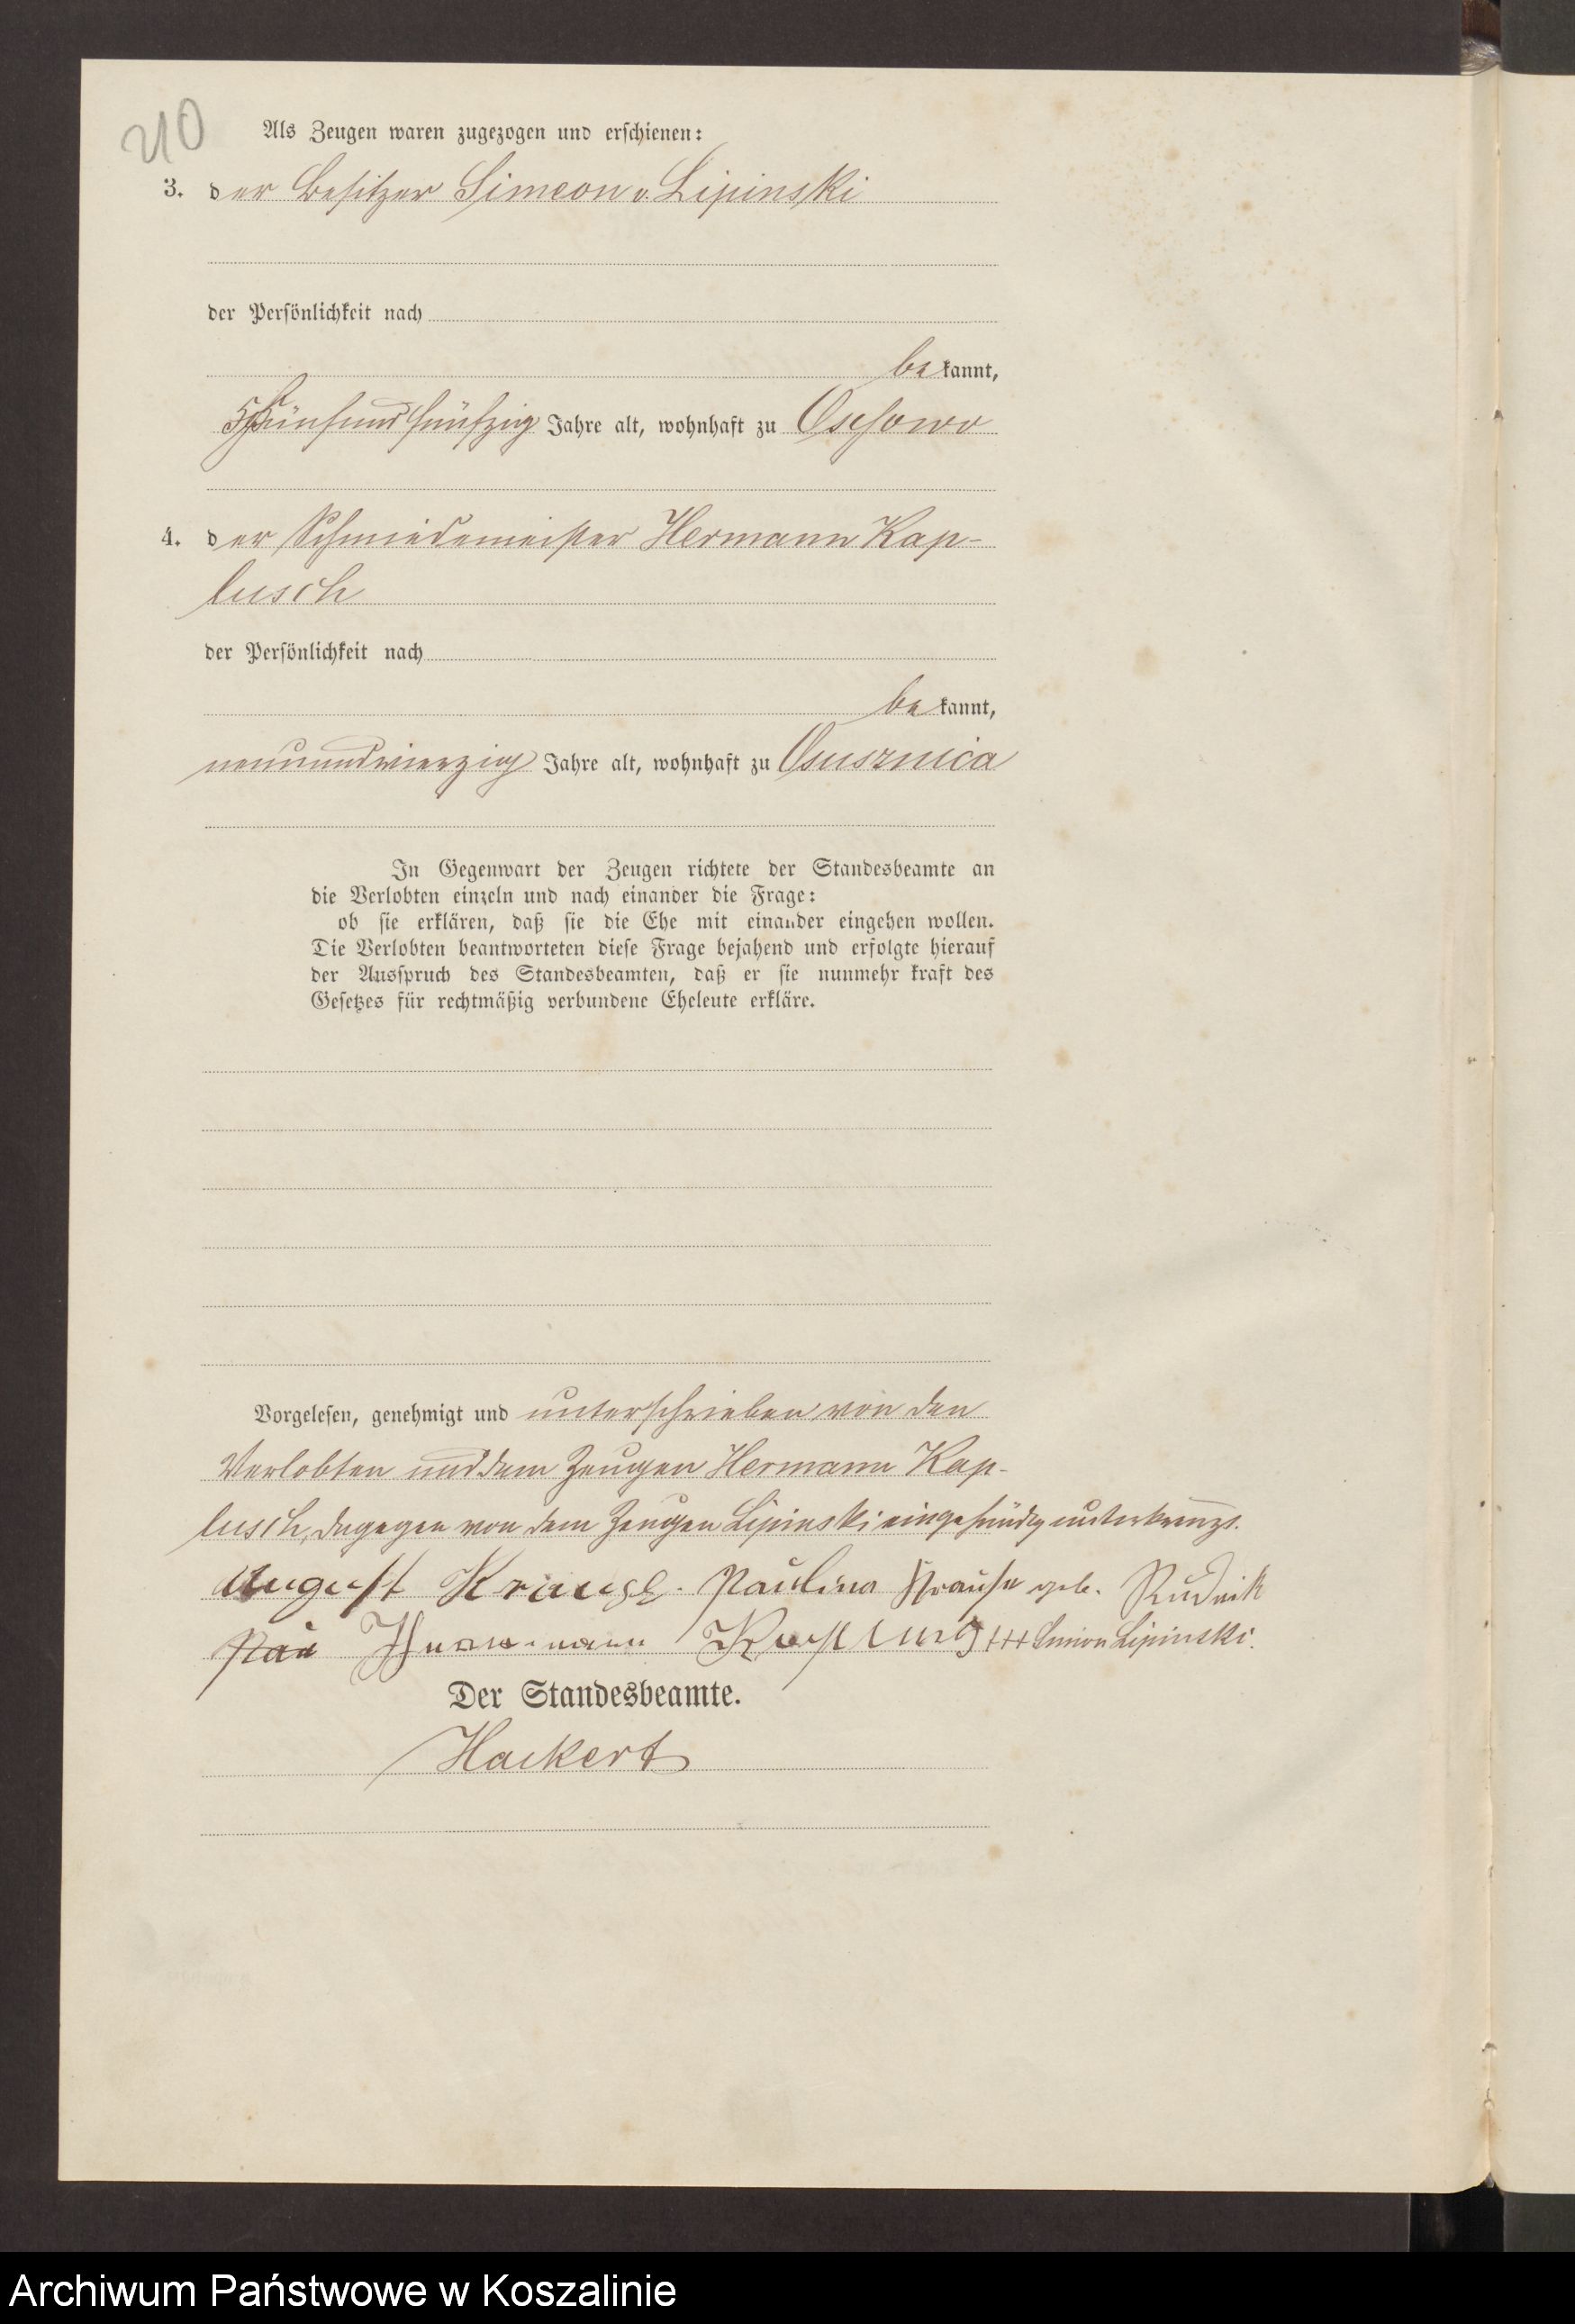 210
Als Zeugen waren zugezogen und erschienen:
3. der Besitzer Simeon v. Lipinski
der Persönlichkeit nach
bekannt,
fünfundfünfzig Jahre alt, wohnhaft zu Ossowo
4. der Schmiedemeister Hermann Kap-
lusch
der Persönlichkeit nach
bekannt,
neunundvierzig Jahre alt, wohnhaft zu Osusznica
In Gegenwart der Zeugen richtete der Standesbeamte an
die Verlobten einzeln und nach einander die Frage:
ob sie erklären, daß sie die Ehe mit einander eingehen wollen.
Die Verlobten beantworteten diese Frage bejahend und erfolgte hierauf
der Ausspruch des Standesbeamten, daß er sie nunmehr kraft des
Gesetzes für rechtmäßig verbundene Eheleute erkläre.
Vorgelesen, genehmigt und unterschrieben von den
Verlobten und dem Zeugen Hermann Kap-
lusch, dagegen von dem Zeugen Lipinski eingehändig unterkreuzt.
August Krause. Paulina Krause geb. Rudnik
Pau Hermann Kaplusch +++ Simion Lipinski.
Der Standesbeamte.
Hackert
Archiwum Państwowe w Koszalinie